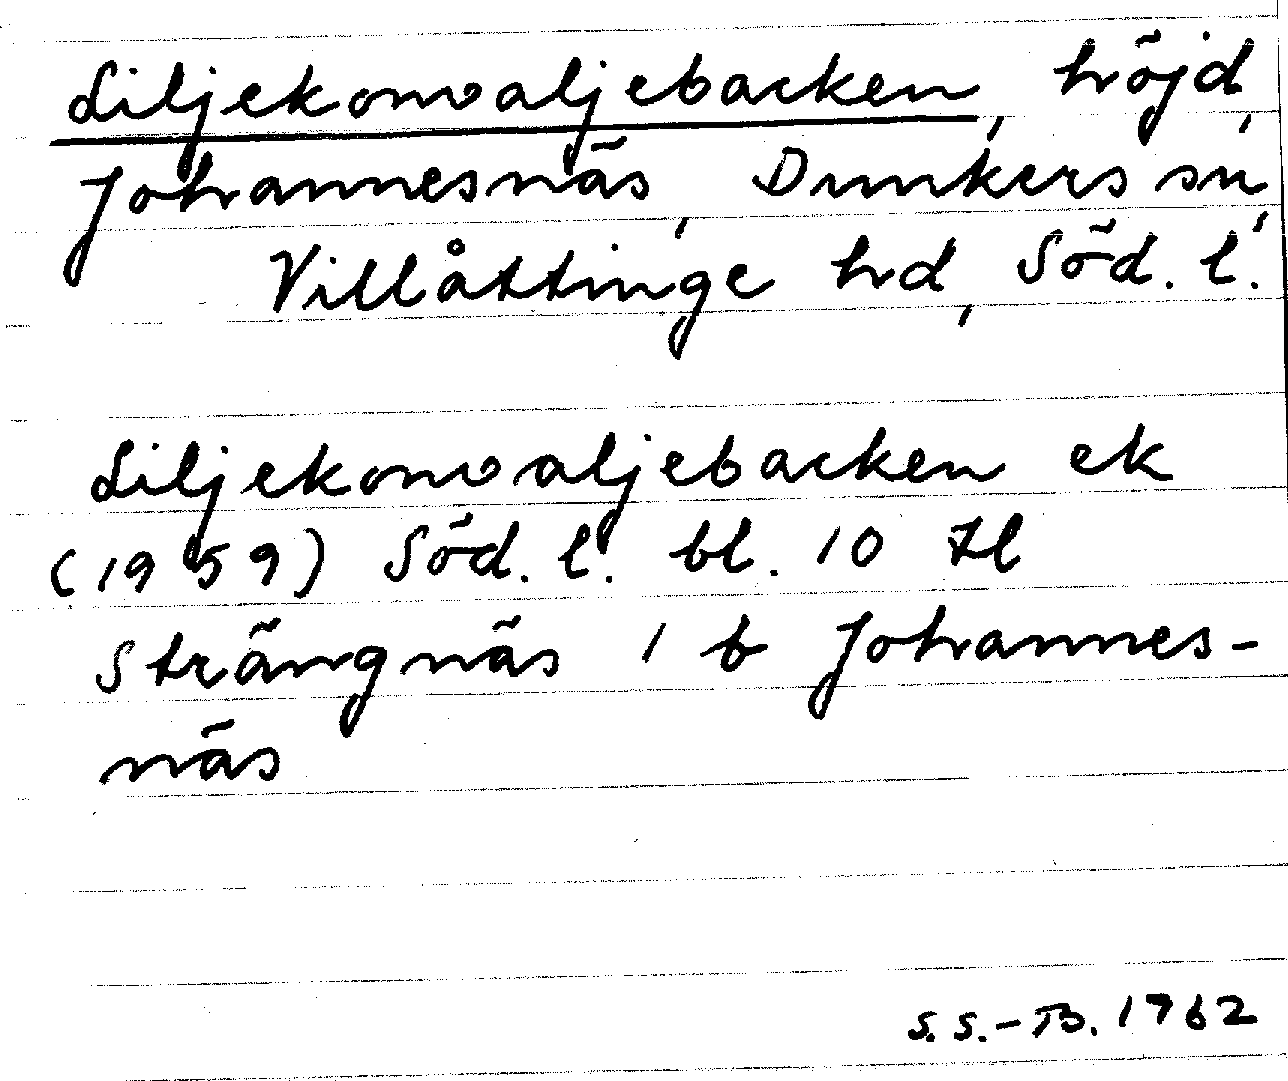 Liljekonvaljebacken, höjd,
Johannesnäs, Dunkers sn,
Villåttinge hd, Söd. l.
Liljekonvaljebacken ek
(1959) Söd. l. bl. 10 Il
Strängnäs 1 b Johannes-
näs
S. S.-B. 1962